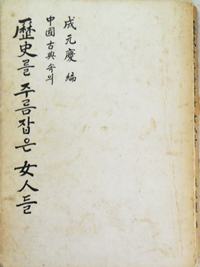 成元慶 編
中國古典속의
歷史를 주름잡은 女人들